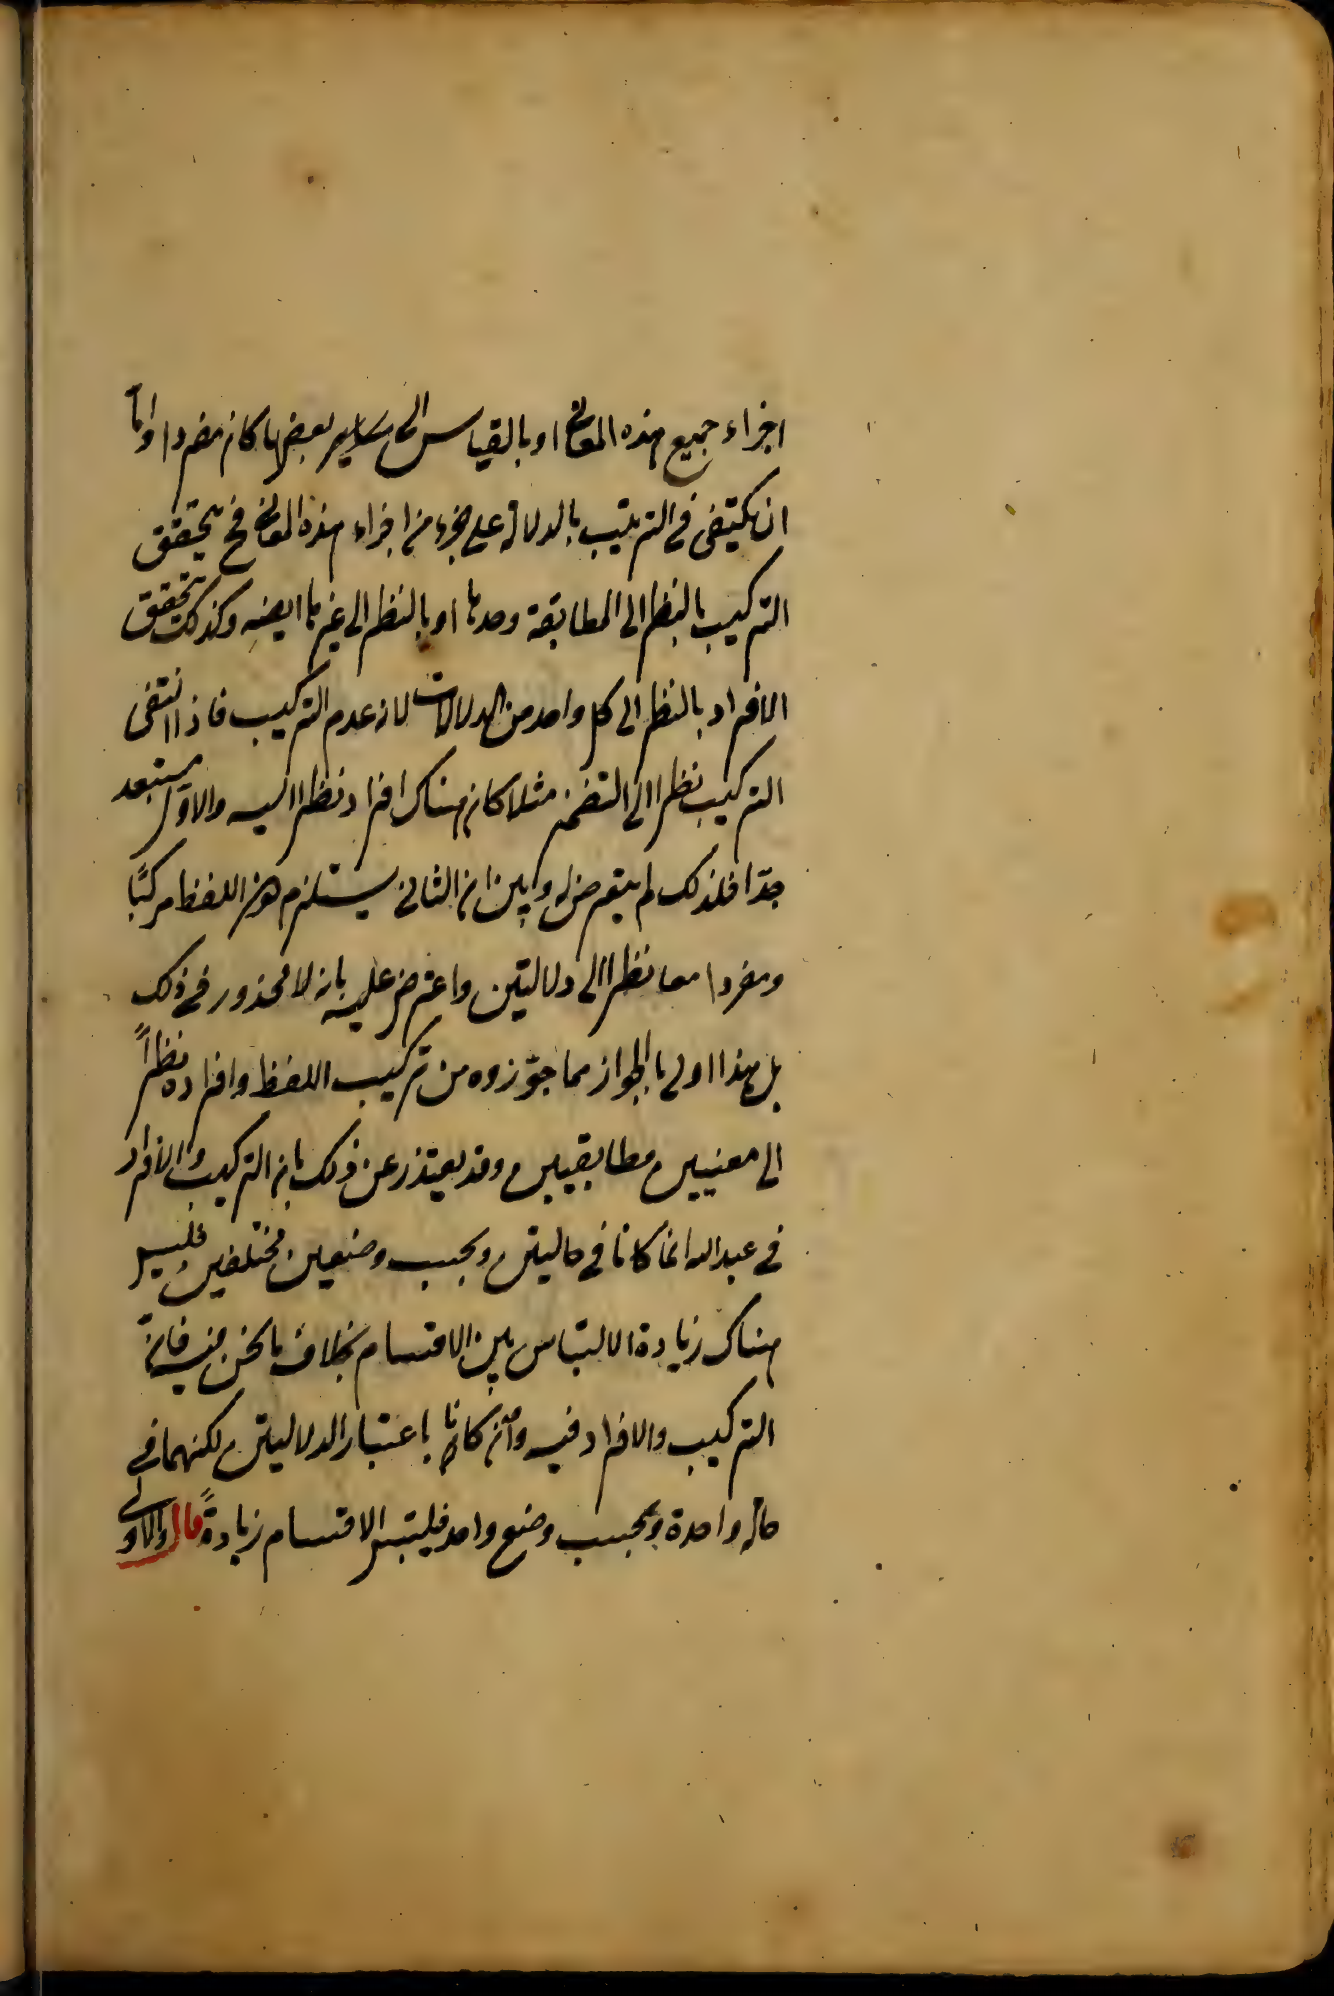 اجزاء جميع هذه المعانى او بالقياس الى سایر بعضها كان مفردا واما
ان يكتفى فى التركيب بالدلالة على جزء من اجزاء هذه المعانى فح يتحقق
التركيب بالنظر الى المطابقة وحدها او بالنظر الى غيرها ايضا وكذلك يتحقق
الافراد بالنظر الى كل واحد من الدلالات لانه عدم التركيب فاذا انتفى
التركيب نظرا الى التضمن مثلا كان هناك افراد نظرا اليه والاول مستبعد
جدّا فلذلك لم يتعرض له وبين ان الثانى يستلزم كون اللفظ مركبًا
ومفردا معا نظرا الى دلالتين واعترض عليه بانه لا محذور فى ذلك
بل هذا اولى بالجواز مما جوّزوه من تركيب اللفظ وافراده نظراً
الى معنيين مطابقيين وقد يعتذر عن ذلك بان التركيب والافراد
فى عبد الله انما كانا فى حالتين وبحسب وضعين مختلفين فليس
هناك زيادة الالتباس بين الاقسام بخلاف ما نحن فيه فانّ
التركيب والافراد فيه وان كانا باعتبار الدلالتين لكنهما فى
حالة واحدة وبحسب وضع واحد فيلتبس الاقسام زيادةً قال والاولى